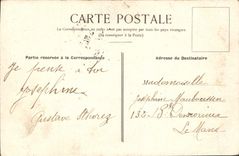 CARTE POSTALE
La Correspondance au recto n'est pas acceptée par tous les pays étrangers
(Se renseigner à la Poste)
Partie réservée à la Correspondance
Adresse du Destinataire
Je pense à toi
Joséphine
Gustave
Mademoiselle
Joséphine
132
Le Mans